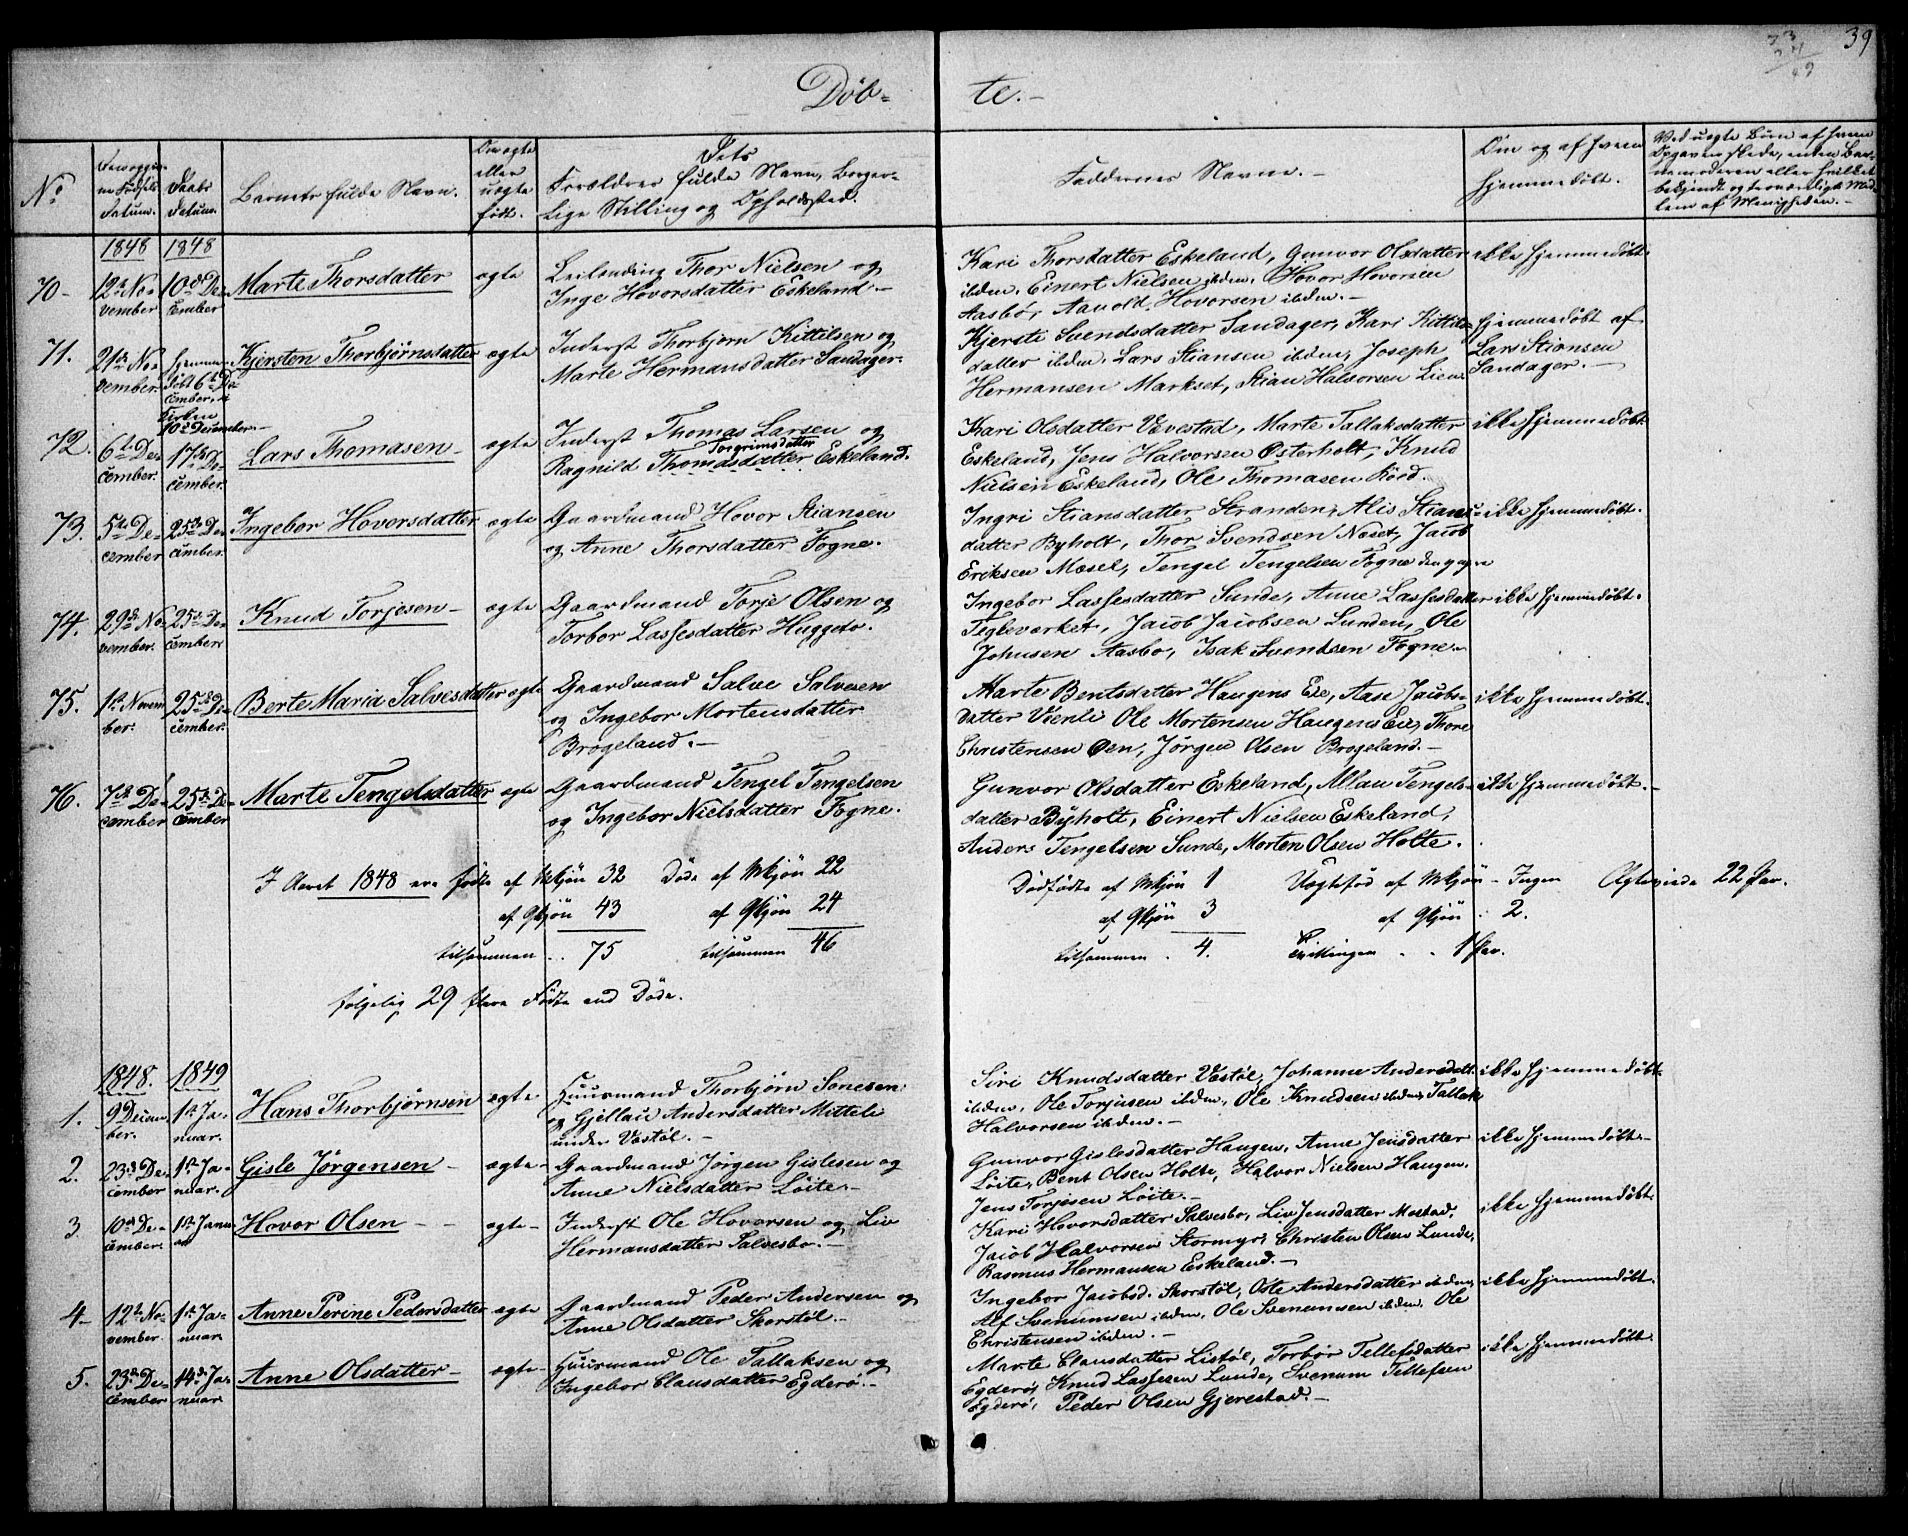 39
73
24
49
Døb-te.-
No
Barnets fulde Navn.
Dets
Forældres fulde Navn, Borger-
lige Stilling og Opholdssted.
Faddernes Navne.-
Om og af hvem
hjemmedøbt.
Om ægte
eller
uægte
født.
Daabs
Datum.
1848 1848
70- 12te No-
vember 10de De-
cember Marte Thorsdatter ægte Leilending Thor Nielsen og
Inge Hovorsdatter Eskeland-
Kari Thorsdatter Eskeland, Gunvor Olsdatter
ibdm. Einert Nielsen ibdm. Hovor Hovorsen
Aasbø, Aanold Hovorsen ibdm.-
ikke hjemmedøbt.
71. 21de No-
vember hjemme-
døbt 6te De-
cember, i
Kirken
10de December.- Kjersten Thorbjørnsdatter ægte Inderst Thorbjørn Kittilsen og
Marte Hermansdatter Sandager.
Kjersti Svendsdatter Sandager, Kari Kittils-
datter ibdm. Lars Stiansen ibdm, Joseph
Hermansen Markset, Stian Halvorsen Lien.
hjemmedøbt af
Lars Stiansen
Sandager.-
72. 6te De-
cember. 17de De-
cember. Lars Thomasen- ægte Inderst Thomas Larsen og
Torgrimsdatter
Ragnild Thomasdatter Eskeland.
Kari Olsdatter Vævestad, Marte Tallaksdatter
Eskeland, Jens Halvorsen Østerholt, Knud
Nielsen Eskeland, Ole Thomasen
ikke hjemmedøbt
73. 5te De-
cember 25de De-
cember. Ingebor Hovorsdatter ægte Gaardmand Hovor Stiansen
og Anne Thorsdatter Fogne.
Ingri Stiansdatter Stranden, Alis Stians-
datter Byholt, Thor Svendsen Næset, Jacob
Eriksen Mæsel, Tengel Tengelsen Fogne den yngre
ikke hjemmedøbt.
74. 29de No-
vember. 25de De-
cember Knud Torjesen- ægte Gaardmand Torje Olsen og
Torbor Lassesdatter Huggedo.
Ingebor Lassesdatter Sunde, Anne Lassesdatter
Tegleværket, Jacob Jacobsen Lunden, Ole
Johnsen Aasbø, Isak Svendsen Fogne-
ikke hjemmedøbt.
75. 1ste Novem-
ber. 25de De-
cember. Berte Maria Salvesdatter ægte Gaardmand Salve Salvesen
og Ingebor Mortensdatter
Brøgeland.-
Marte Bentsdatter Haugens Eie, Aase Jacobs-
datter Vienli Ole Mortensen Haugens Eie, Thore
Christensen Øen, Jørgen Olsen Brøgeland.-
ikke hjemmedøbt.
76. 7de De-
cember 25de De-
cember Marte Tengelsdatter ægte Gaardmand Tengel Tengelsen
og Ingebor Nielsdatter Fogne.
Gunvor Olsdatter Eskeland, Allau Tengels-
datter Byholt, Einert Nielsen Eskeland,
Anders Tengelsen Sunde, Morten Olsen Holte.
ikke hjemmedøbt.-
I Aaret 1848 ere fødte af Mkjøn 32 Døde af Mkjøn 22
af Qkjøn 43 af Qkjøn 24
tilsammen .. 75 tilsammen 46
følgelig 29 flere Fødte end Døde.
Dødfødte af Mkjøn 1 Uægtefød af Mkjøn - Ingen Ægteviede 22 Par.
af Qkjøn 3 af Qkjøn .. 2.
tilsammen . 4. Tvillinger . . 1 Par.
1848. 1849
1. 9 Decem-
ber. 1ste Ja-
nuar. Hans Thorbjørnsen ægte Huusmand Thorbjørn Sonesen
og Gjellaú Andersdatter Mitteli
under Vestøl.-
Siri Knudsdatter Vestøl, Johanne Andersdatt.
ibdm, Ole Torjusen ibdm, Ole Knudsen ibdm, Tallak
Halvorsen ibdm.-
ikke hjemmedøbt.
2. 23de De-
cember 1ste Ja-
nuar. Gisle Jørgensen- ægte- Gaardmand Jørgen Gislesen og
Anne Nielsdatter Løite.-
Gunvor Gislesdatter Haugen, Anne Jensdatter
Løite, Bent Olsen Holte, Halvor Nielsen Haugen,
Jens Torjesen Løite.-
ikke hjemmedøbt.-
3 10de De-
cember. 1ste Janu-
ar Hovor Olsen - - ægte- Inderst Ole Hovorsen og Liv
Hermansdatter Salvesbo.-
Kari Hovorsdatter Salvesbo, Liv Jensdatter Mostad,
Jacob Halvorsen Stormyr, Christen Olsen Lunde,
Rasmus Hermansen Eskeland.-
ikke hjemmedøbt.
4- 12te No-
vember. 1ste Ja-
nuar. Anne Perine Pedersdatter ægte Gaardmand Peder Andersen og
Anne Olsdatter Skorstøl.-
Ingebor Jacobsd. Skorstøl, Oste Andersdatter ibdm,
Alf Svenumsen ibdm, Ole Svenumsen ibdm. Ole
Christensen ibdm.-
ikke hjemmedøbt.
5. 23de De-
cember 14de Ja-
nuar Anne Olsdatter- ægte- Huusmand Ole Tallaksen og
Ingebor Clausdatter Egderø.-
Marte Clausdatter Listøl, Torbor Tellefsdatter
Egderø, Knud Lassesen Lunde, Svenum Tellefsen
Egderø, Peder Olsen Gjerestad.-
ikke hjemmedøbt.